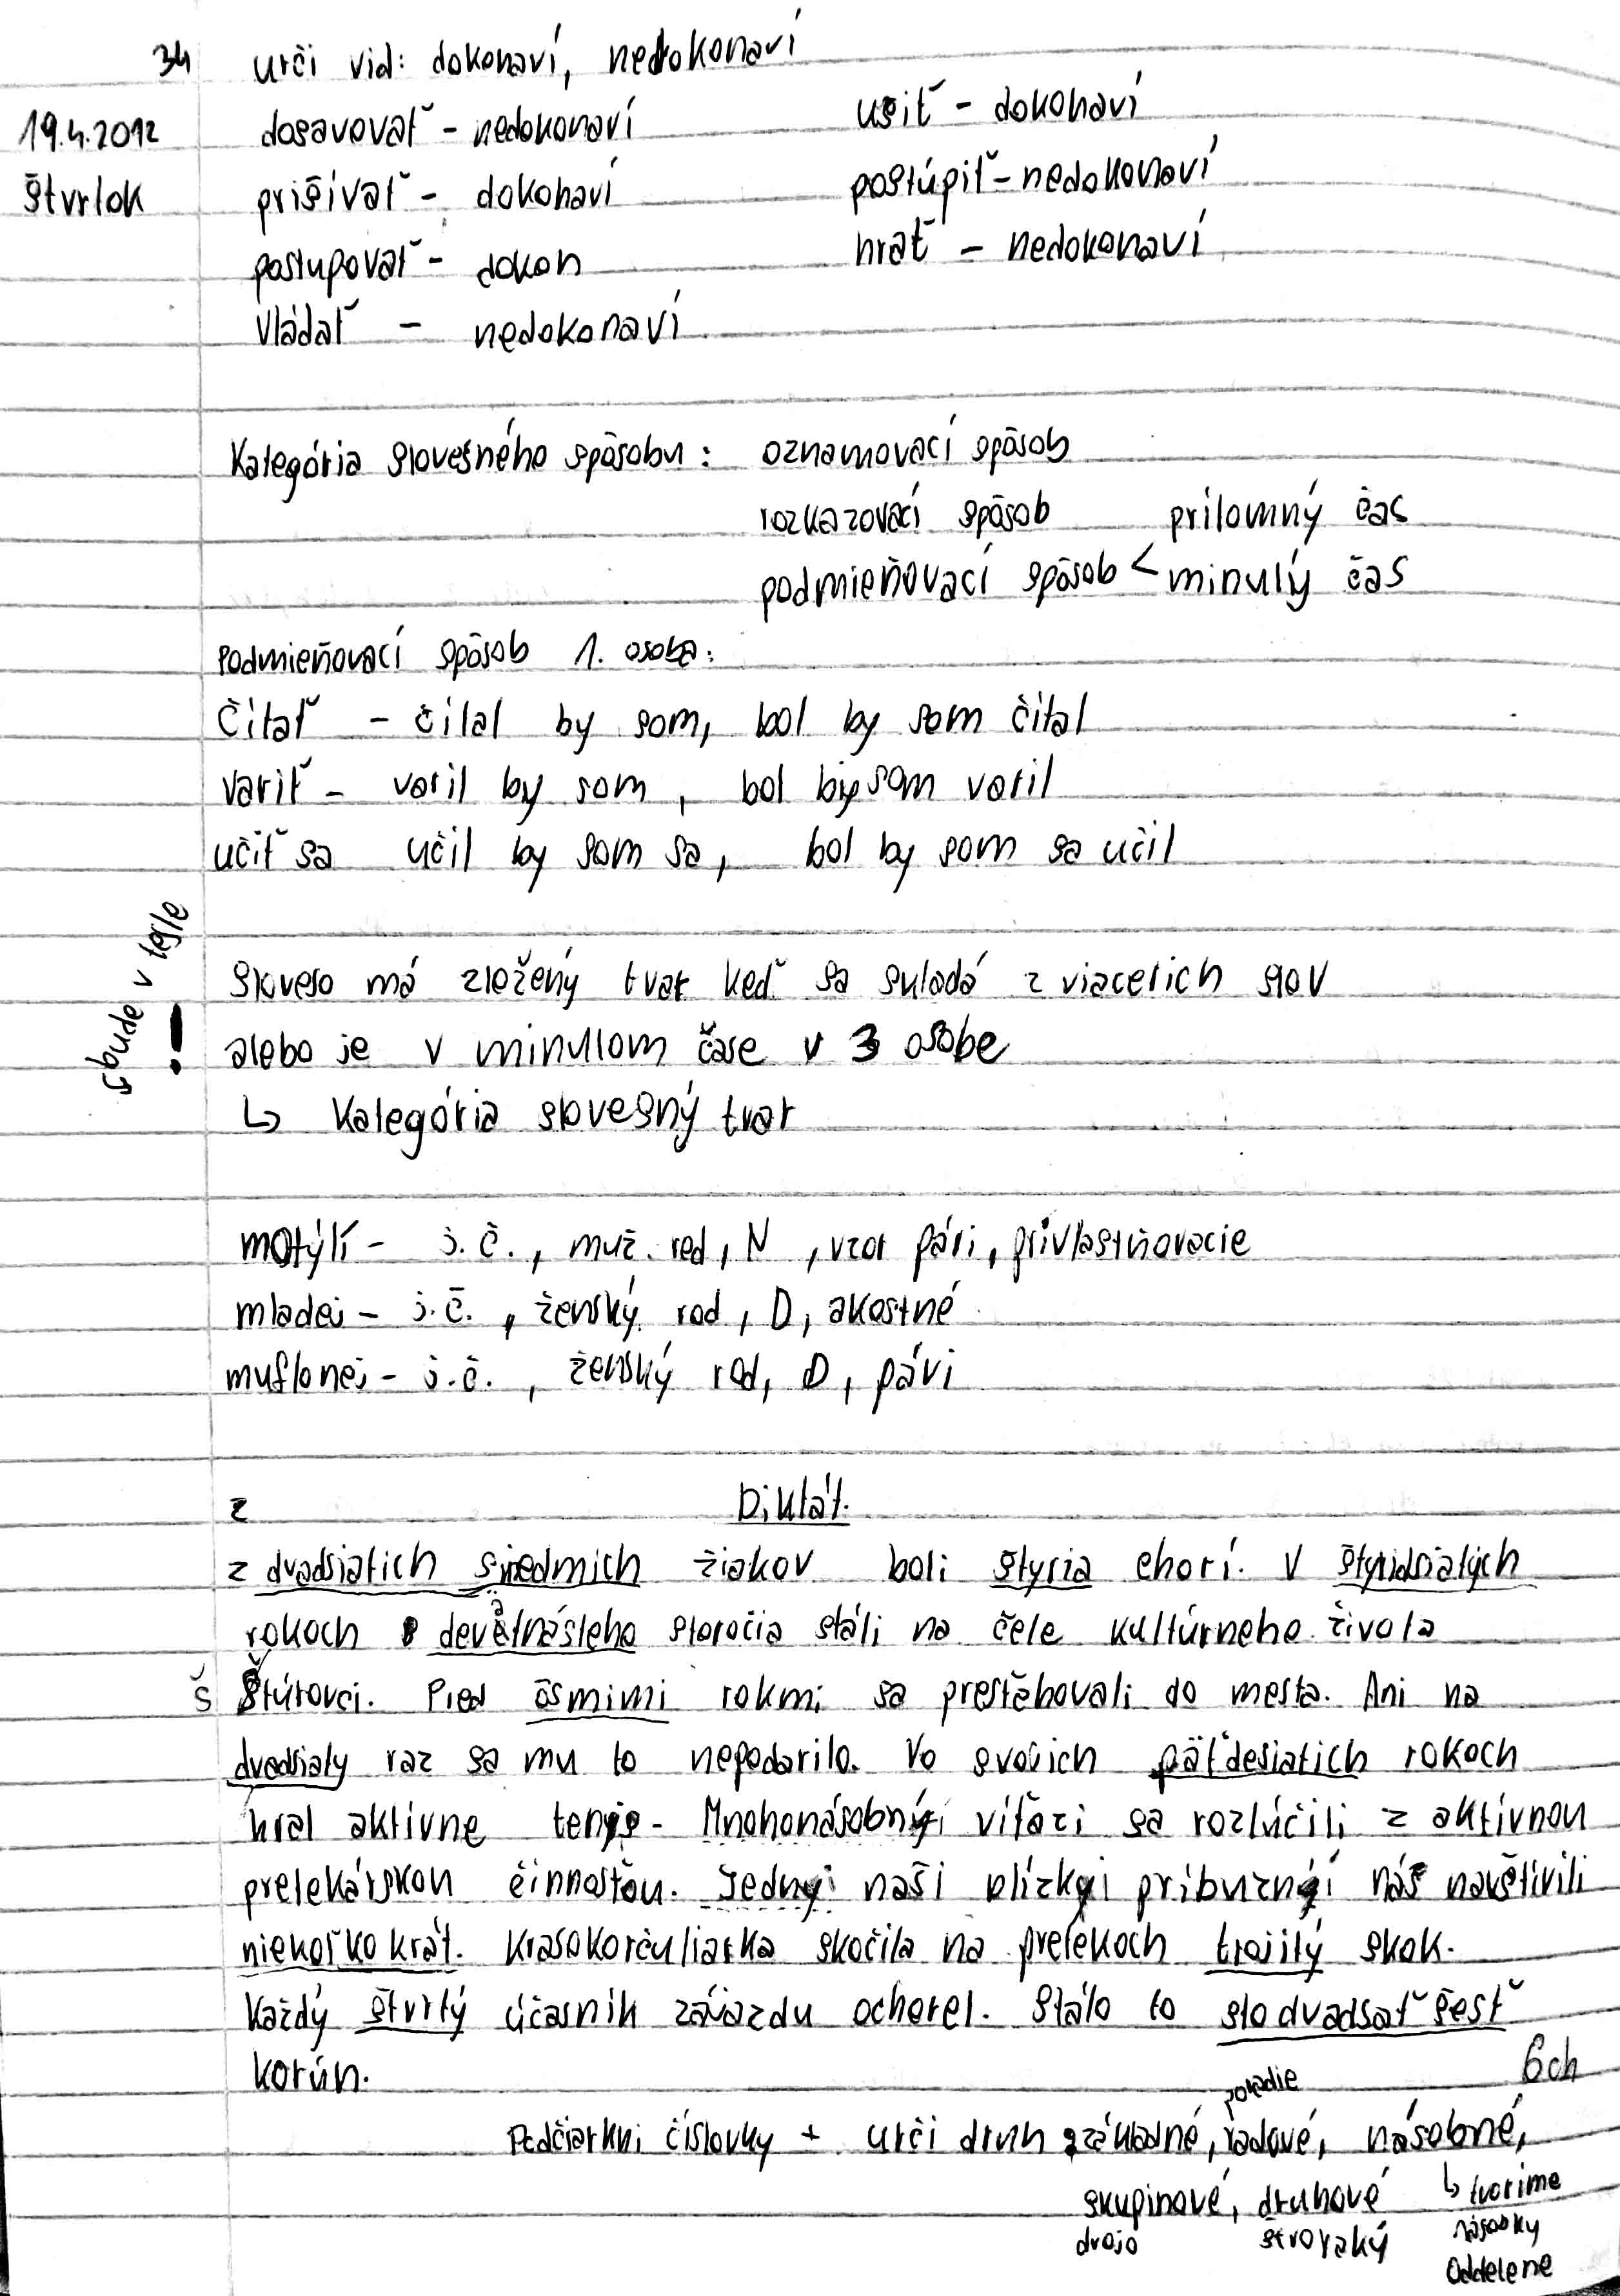 34 urči vid: dokonaví, nedokonaví
19.4.2012 dosavovať - nedokonaví ušiť - dokonaví
štvrtok prišívať - dokonaví postúpiť - nedokonaví
postupovať - dokon hrať - nedokonaví
vládať - nedokonaví
Kategória slovesného spôsobu: oznamovací spôsob
rozkazovací spôsob prítomný čas
podmieňovací spôsob < minulý čas
podmieňovací spôsob 1. osoba:
Čítať - čítal by som, bol by som čítal
variť - varil by som, bol by som varil
učiť sa učil by som sa, bol by som sa učil
bude v teste
!
sloveso má zložený tvar keď sa skladá z viacerich slov
alebo je v minulom čase v 3 osobe
↳ Kategória slovesný tvar
motýlí - j.č., muž. rod, N, vzor pávi, privlastňovacie
mladej - j.č., ženský rod, D, akostné
muflonej - j.č., ženský rod, D, pávi
z Diktát.
z dvadsiatich siedmich žiakov boli štyria chorí. V štyridsiatých
rokoch devätnásteho storočia stáli na čele kultúrneho života
š Štúrovci. Pred ôsmimi rokmi sa presťahovali do mesta. Ani na
dvadsiaty raz sa mu to nepodarilo. Vo svojich päťdesiatich rokoch
hral aktívne tenis. Mnohonásobní víťazi sa rozlúčili z aktívnou
pretekárskou činnosťou. Jedni naši blízki príbuzní nás navštívili
niekoľko krát. Krasokorčuliarka skočila na pretekoch trojitý skok.
Každý štvrtý účasník závazdu ochorel. Stálo to stodvadsať šesť
korún. 6ch
poradie
Podčiarkni číslovky + urči druh základné, radové, násobné,
skupinové, druhové ↳ tvoríme
dvojo štvoraký násobky
oddelene